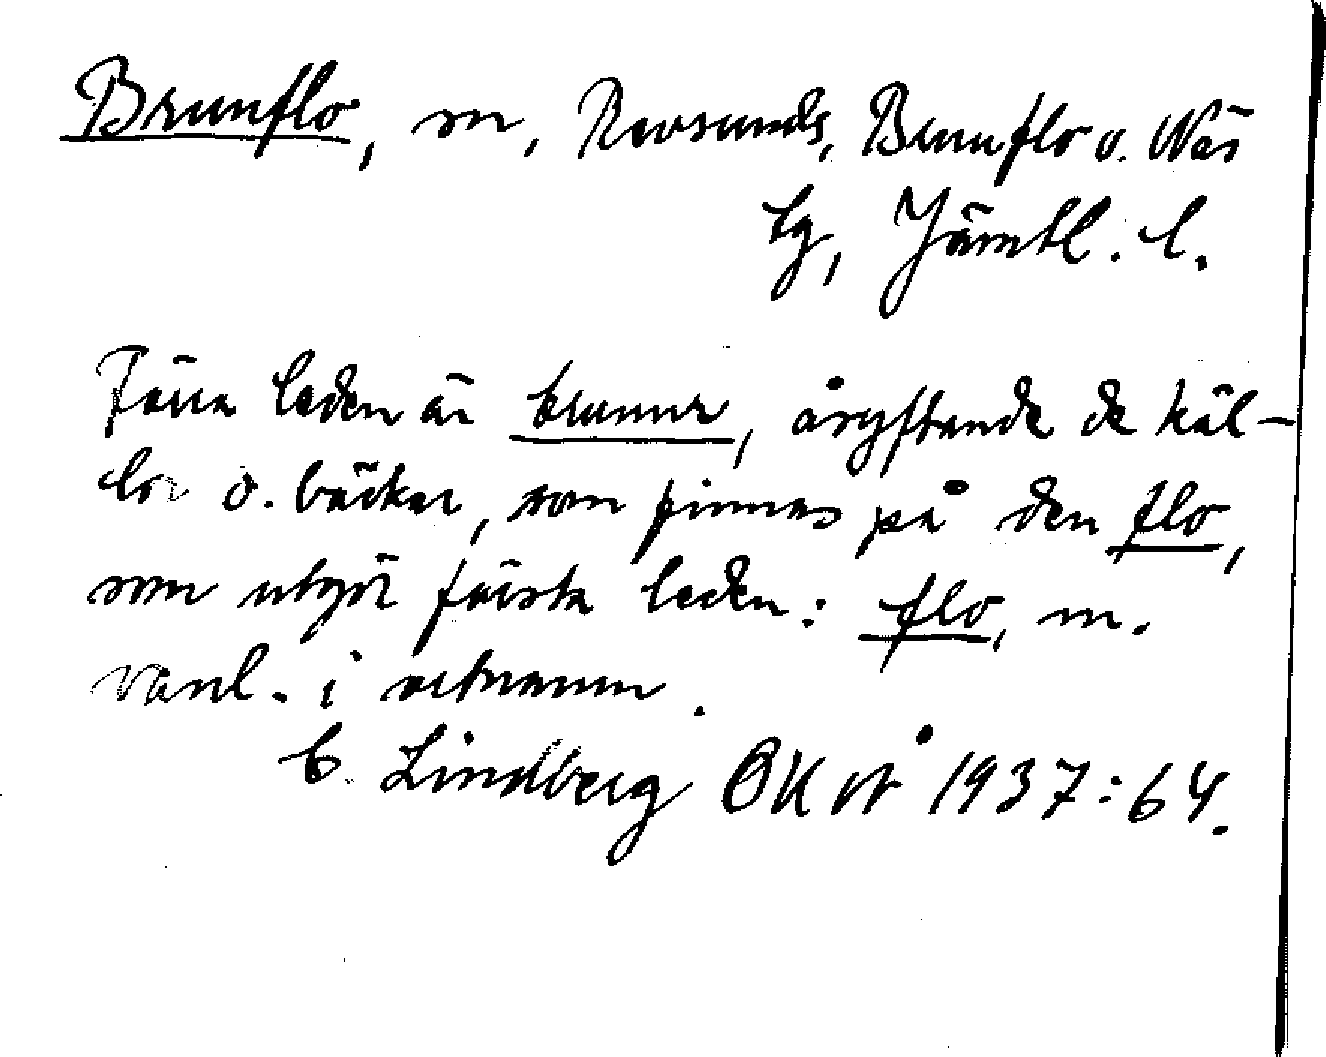 Brunflo, sn, Revsunds, Brunflo o. Näs
tg, Jämtl. l.
Förra leden är brunnr, åsyftande de käl-
lor o. bäckar, som finnas på den flo,
som utgör första leden: flo, m.
vanl. i ortnamn.
C. Lindberg OKN 1937:64.